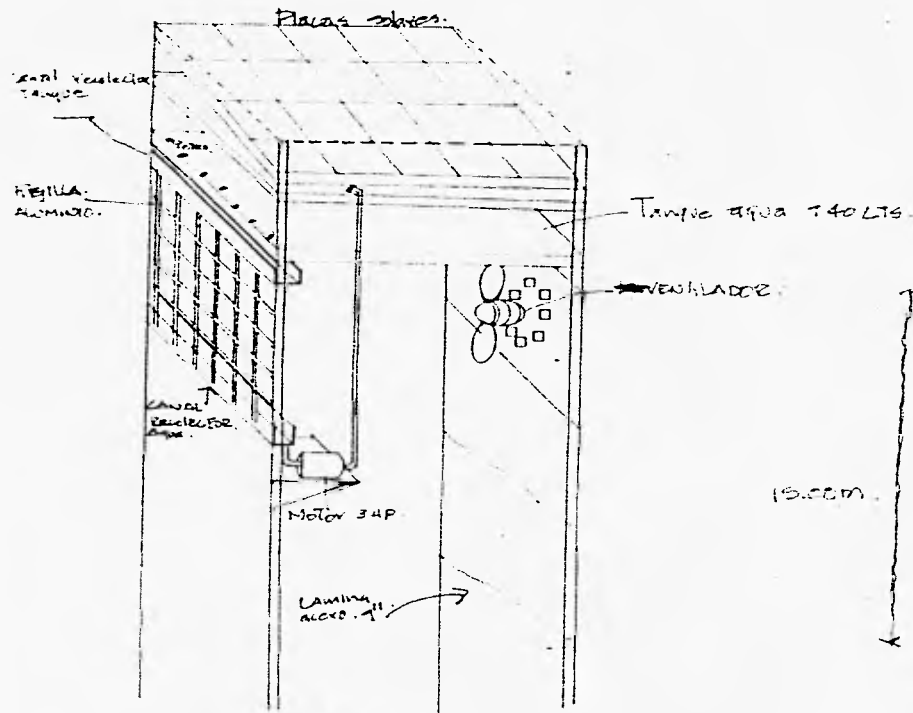 Placas solares.
TANQUE
REJILLA
ALUMINIO.
Tanque agua 140 LTS.
VENTILADOR.
CANAL
RECOLECTOR
AGUA.
Motor 3 HP.
15.00m.
LAMINA
ACERO. 1"